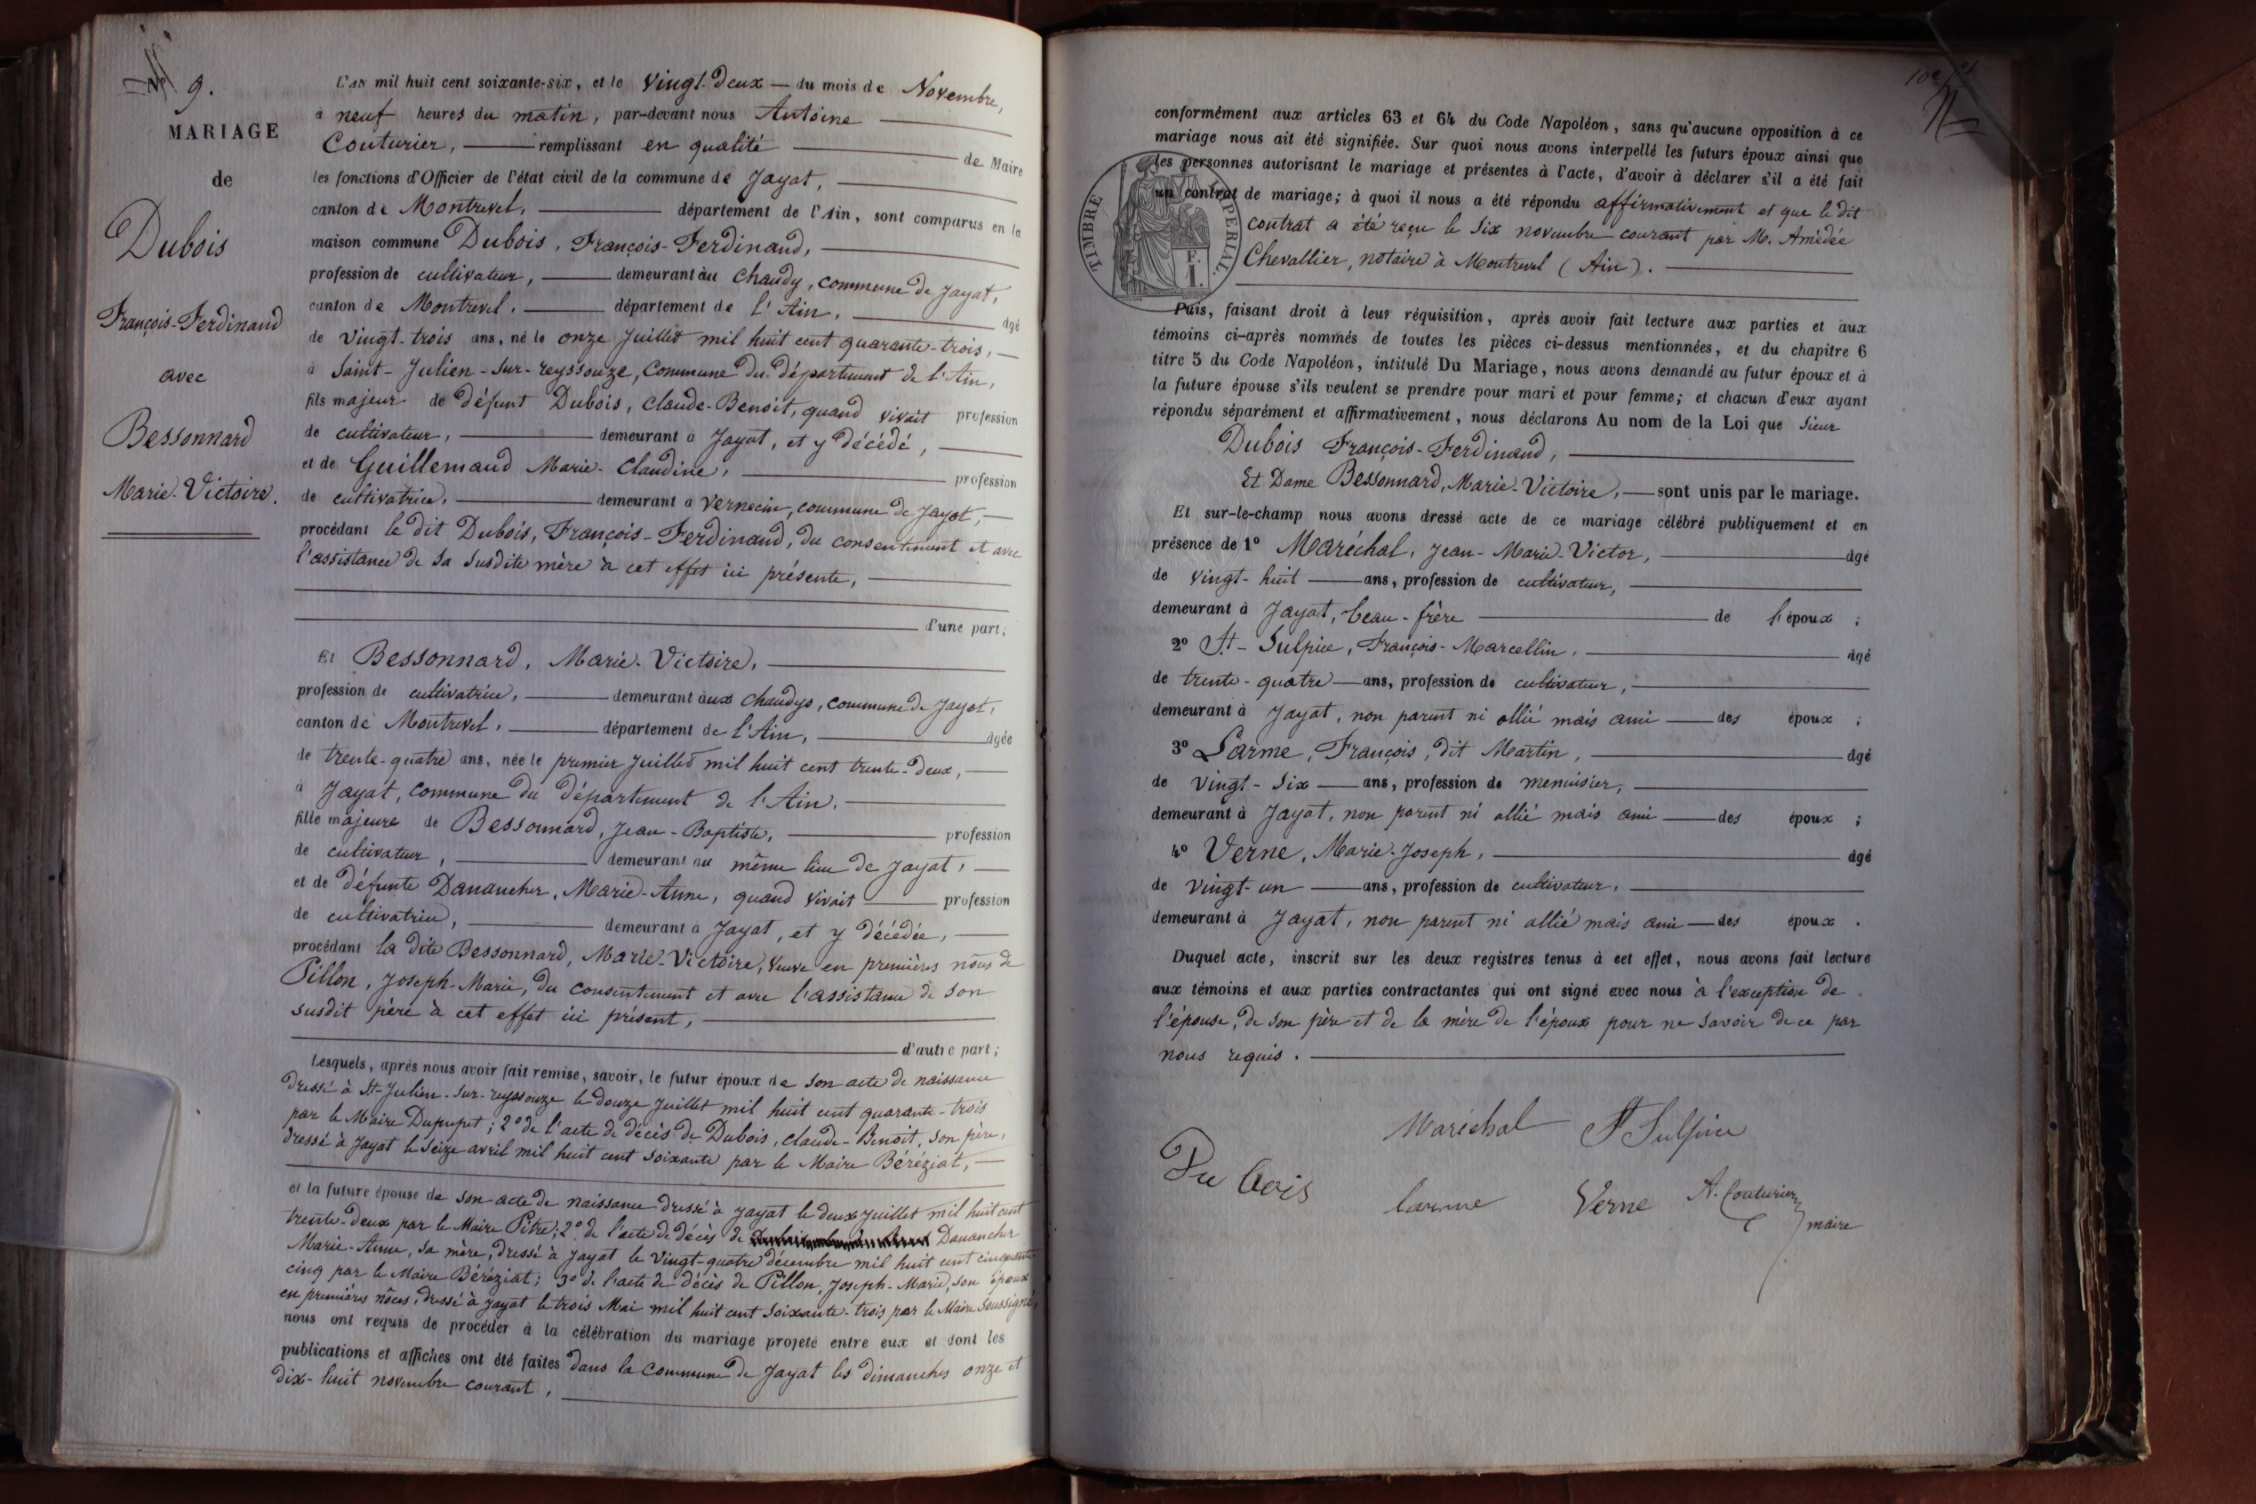 N° 9.
MARIAGE
de
Dubois
François-Ferdinand
avec
Bessonnard
Marie-Victoire.
L'an mil huit cent soixante-six, et le vingt-deux du mois de Novembre,
à neuf heures du matin, par-devant nous Antoine
Couturier, remplissant en qualité de Maire
les fonctions d'Officier de l'état civil de la commune de Jayat,
canton de Montrevel, département de l'Ain, sont comparus en la
maison commune Dubois, François-Ferdinand,
profession de cultivateur, demeurant au Chaudy, commune de Jayat,
canton de Montrevel, département de l'Ain, âgé
de vingt-trois ans, né le onze Juillet mil huit cent quarante-trois,
à Saint-Julien-sur-reyssouze, commune du département de l'Ain,
fils majeur de défunt Dubois, Claude-Benoit, quand vivait profession
de cultivateur, demeurant à Jayat, et y décédé,
et de Guillemaud Marie-Claudine, profession
de cultivatrice, demeurant à Vernecin, commune de Jayat,
procédant le dit Dubois, François-Ferdinand, du consentement et avec
l'assistance de sa susdite mère à cet effet ici présente,
d'une part;
Et Bessonnard, Marie-Victoire,
profession de cultivatrice, demeurant aux Chaudys, commune de Jayat,
canton de Montrevel, département de l'Ain, âgée
de trente-quatre ans, née le premier Juillet mil huit cent trente-deux,
à Jayat, commune du département de l'Ain,
fille majeure de Bessonnard, Jean-Baptiste, profession
de cultivateur, demeurant au même lieu de Jayat,
et de défunte Danancher, Marie-Anne, quand vivait profession
de cultivatrice, demeurant à Jayat, et y décédée,
procédant la dite Bessonnard, Marie-Victoire, veuve en premières nôces de
Pillon, Joseph-Marie, du consentement et avec l'assistance de son
susdit père à cet effet ici présent,
d'autre part;
Lesquels, après nous avoir fait remise, savoir, le futur époux de son acte de naissance
dressé à St-Julien-sur-reyssouze le douze Juillet mil huit cent quarante-trois
par le Maire Dupupet; 2° de l'acte de décès de Dubois, Claude-Benoit, son père,
dressé à Jayat le seize avril mil huit cent soixante par le Maire Béréziat,
et la future épouse de son acte de naissance dressé à Jayat le deux Juillet mil huit cent
trente-deux par le Maire Pitre; 2° de l'acte de décès de Danancher
Marie-Anne, sa mère, dressé à Jayat le vingt-quatre décembre mil huit cent cinquante
cinq par le Maire Béréziat; 3° de l'acte de décès de Pillon, Joseph-Marie, son époux
en premières nôces, dressé à Jayat le trois Mai mil huit cent soixante-trois par le Maire soussigné,
nous ont requis de procéder à la célébration du mariage projeté entre eux et dont les
publications et affiches ont été faites dans la commune de Jayat les dimanches onze et
dix-huit novembre courant,
conformément aux articles 63 et 64 du Code Napoléon, sans qu'aucune opposition à ce
mariage nous ait été signifiée. Sur quoi nous avons interpellé les futurs époux ainsi que
les personnes autorisant le mariage et présentes à l'acte, d'avoir à déclarer s'il a été fait
un contrat de mariage; à quoi il nous a été répondu affirmativement et que le dit
contrat a été reçu le six novembre courant par M. Amédée
Chevallier, notaire à Montrevel (Ain).
TIMBRE IMPERIAL.
F.
1.
Puis, faisant droit à leur réquisition, après avoir fait lecture aux parties et aux
témoins ci-après nommés de toutes les pièces ci-dessus mentionnées, et du chapitre 6
titre 5 du Code Napoléon, intitulé Du Mariage, nous avons demandé au futur époux et à
la future épouse s'ils veulent se prendre pour mari et pour femme; et chacun d'eux ayant
répondu séparément et affirmativement, nous déclarons Au nom de la Loi que Sieur
Dubois François-Ferdinand,
Et Dame Bessonnard, Marie-Victoire, sont unis par le mariage.
Et sur-le-champ nous avons dressé acte de ce mariage célébré publiquement et en
présence de 1° Maréchal, Jean-Marie-Victor, âgé
de vingt-huit ans, profession de cultivateur,
demeurant à Jayat, beau-frère de l'époux;
2° St-Sulpice, François-Marcellin, âgé
de trente-quatre ans, profession de cultivateur,
demeurant à Jayat, non parent ni allié mais ami des époux;
3° Larme, François, dit Martin, âgé
de vingt-six ans, profession de menuisier,
demeurant à Jayat, non parent ni allié mais ami des époux;
4° Verne, Marie-Joseph, âgé
de vingt-un ans, profession de cultivateur,
demeurant à Jayat, non parent ni allié mais ami des époux.
Duquel acte, inscrit sur les deux registres tenus à cet effet, nous avons fait lecture
aux témoins et aux parties contractantes qui ont signé avec nous à l'exception de
l'épouse, de son père et de la mère de l'époux pour ne savoir de ce par
nous requis.
Maréchal St Sulpice
Du bois larme Verne A. Couturier
maire